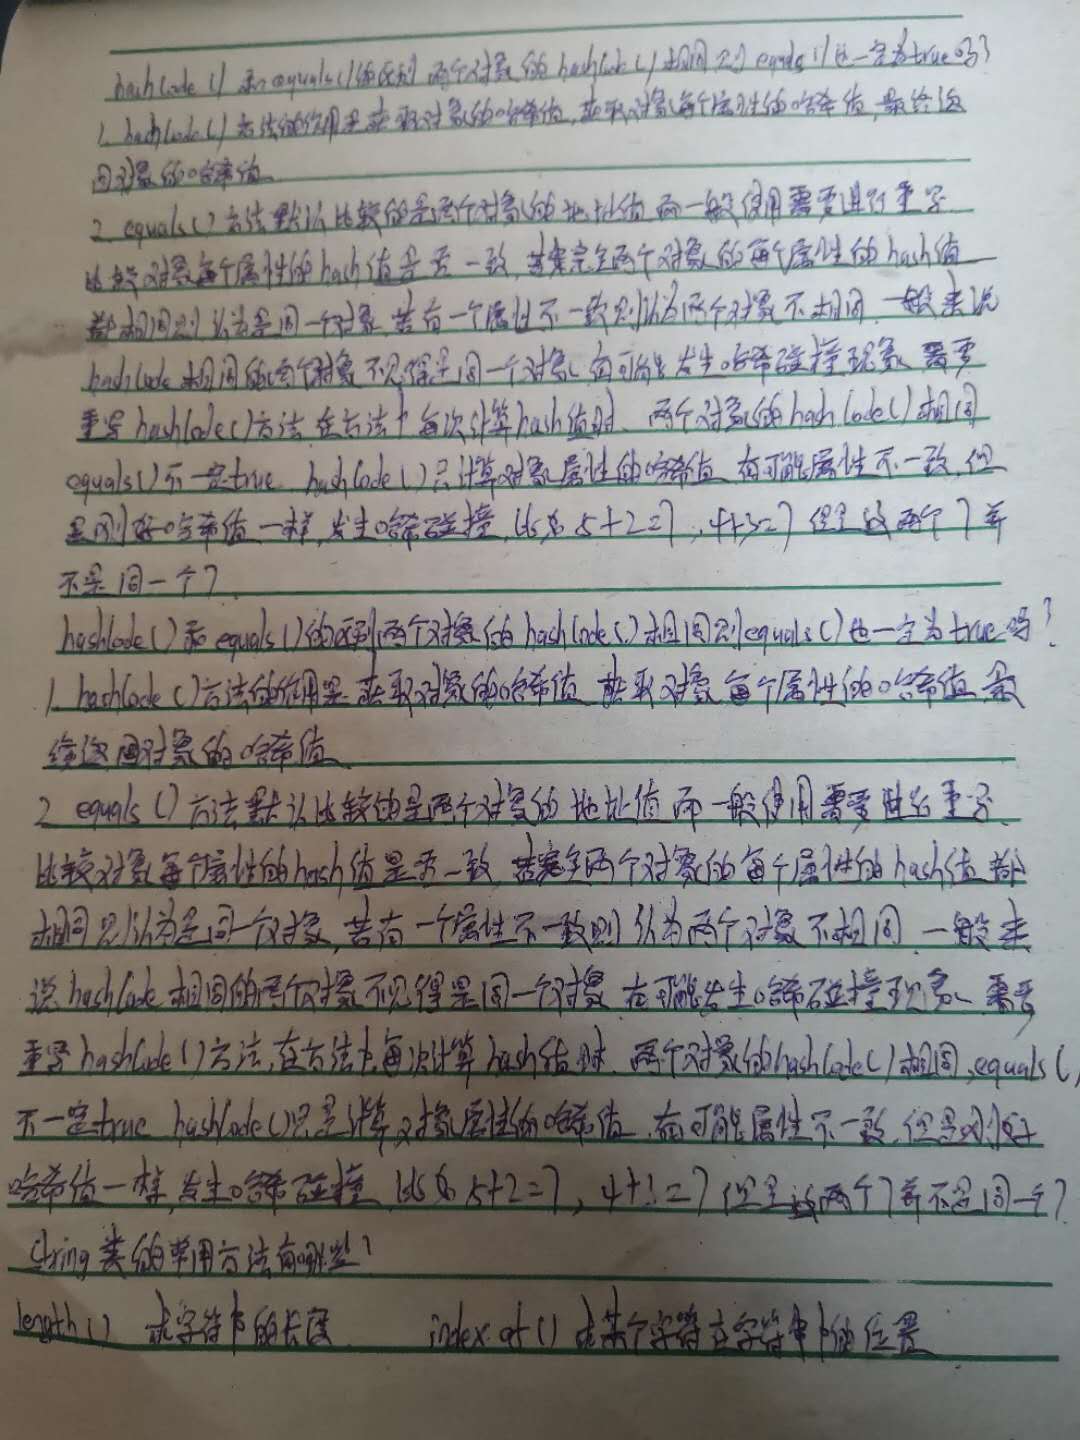 hashCode() 和 equals()的区别 两个对象的 hashCode()相同 则 equals()也一定为true吗?
1. hashCode()方法的作用是获取对象的哈希值,获取对象每个属性的哈希值,最终返
回对象的哈希值
2 equals()方法默认比较的是两个对象的地址值 而一般使用需要进行重写
比较对象每个属性的hash值是否一致,若完全两个对象的每个属性的hash值
都相同则认为是同一个对象 若有一个属性不一致则认为两个对象不相同 一般来说
hashCode 相同的两个对象不见得是同一个对象 有可能发生哈希碰撞现象 需要
重写hashCode()方法 在方法中每次计算hash值时、两个对象的hashCode()相同
equals()不一定true hashCode()只计算对象属性的哈希值 有可能属性不一致,但
是刚好哈希值一样,发生哈希碰撞,比如 5+2=7,4+3=7 但是这两个7并
不是同一个7
hashCode()和equals()的区别 两个对象的hashCode()相同则equals()也一定为true吗?
1. hashCode()方法的作用是获取对象的哈希值 获取对象每个属性的哈希值 最
终返回对象的哈希值
2 equals()方法默认比较的是两个对象的地址值 而一般使用需要进行重写
比较对象每个属性的hash值是否一致 若完全两个对象的每个属性的hash值都
相同则认为是同一个对象,若有一个属性不一致则认为两个对象不相同 一般来
说 hashCode 相同的两个对象不见得是同一个对象 有可能发生哈希碰撞现象、需要
重写hashCode()方法,在方法中每次计算hash值时 两个对象的hashCode()相同,equals()
不一定true hashCode()只是计算对象属性的哈希值,有可能属性不一致,但是刚好
哈希值一样,发生哈希碰撞 比如 5+2=7,4+3=7 但是这两个7并不是同一个7
String 类的常用方法有哪些?
length() 求字符串的长度 index of() 求某个字符在字符串中的位置